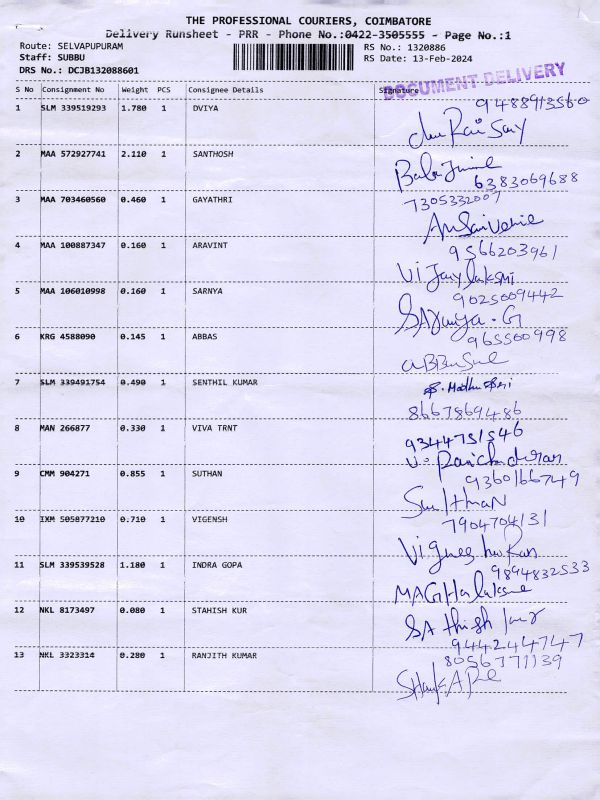 THE PROFESSIONAL COURIERS, COIMBATORE
Delivery Runsheet - PRR - Phone No.:0422-3505555 - Page No.:1
Route: SELVAPUPURAM RS No.: 1320886
Staff: SUBBU RS Date: 13-Feb-2024
DRS No.: DCJB132088601
DOCUMENT DELIVERY
S No Consignment No Weight PCS Consignee Details Signature
9488913560
1 SLM 339519293 1.780 1 DVIYA
2 MAA 572927741 2.110 1 SANTHOSH
6383069688
3 MAA 703460560 0.460 1 GAYATHRI 7305332007
4 MAA 100887347 0.160 1 ARAVINT 9566203961
Vijaylaksmi
5 MAA 106010998 0.160 1 SARNYA 9025009442
6 KRG 4588090 0.145 1 ABBAS 965500998
7 SLM 339491754 0.490 1 SENTHIL KUMAR
8667869486
8 MAN 266877 0.330 1 VIVA TRNT 9344751546
9 CMM 904271 0.855 1 SUTHAN 9360166749
10 IXM 505877210 0.710 1 VIGENSH 7904704131
11 SLM 339539528 1.180 1 INDRA GOPA 9894832533
12 NKL 8173497 0.080 1 STAHISH KUR
944244747
13 NKL 3323314 0.280 1 RANJITH KUMAR 8056771139